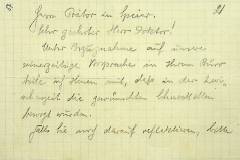 21
Herrn Doktor in Speier.
Sehr geehrter Herr Doktor!
Unter Bezugnahme auf unsere
seinerzeitige Vorsprache in Ihrem Büro
teile ich Ihnen mit, dass in der Zwi-
schenzeit die gewünschten
besorgt wurden.
Falls Sie noch darauf reflektieren, bitte